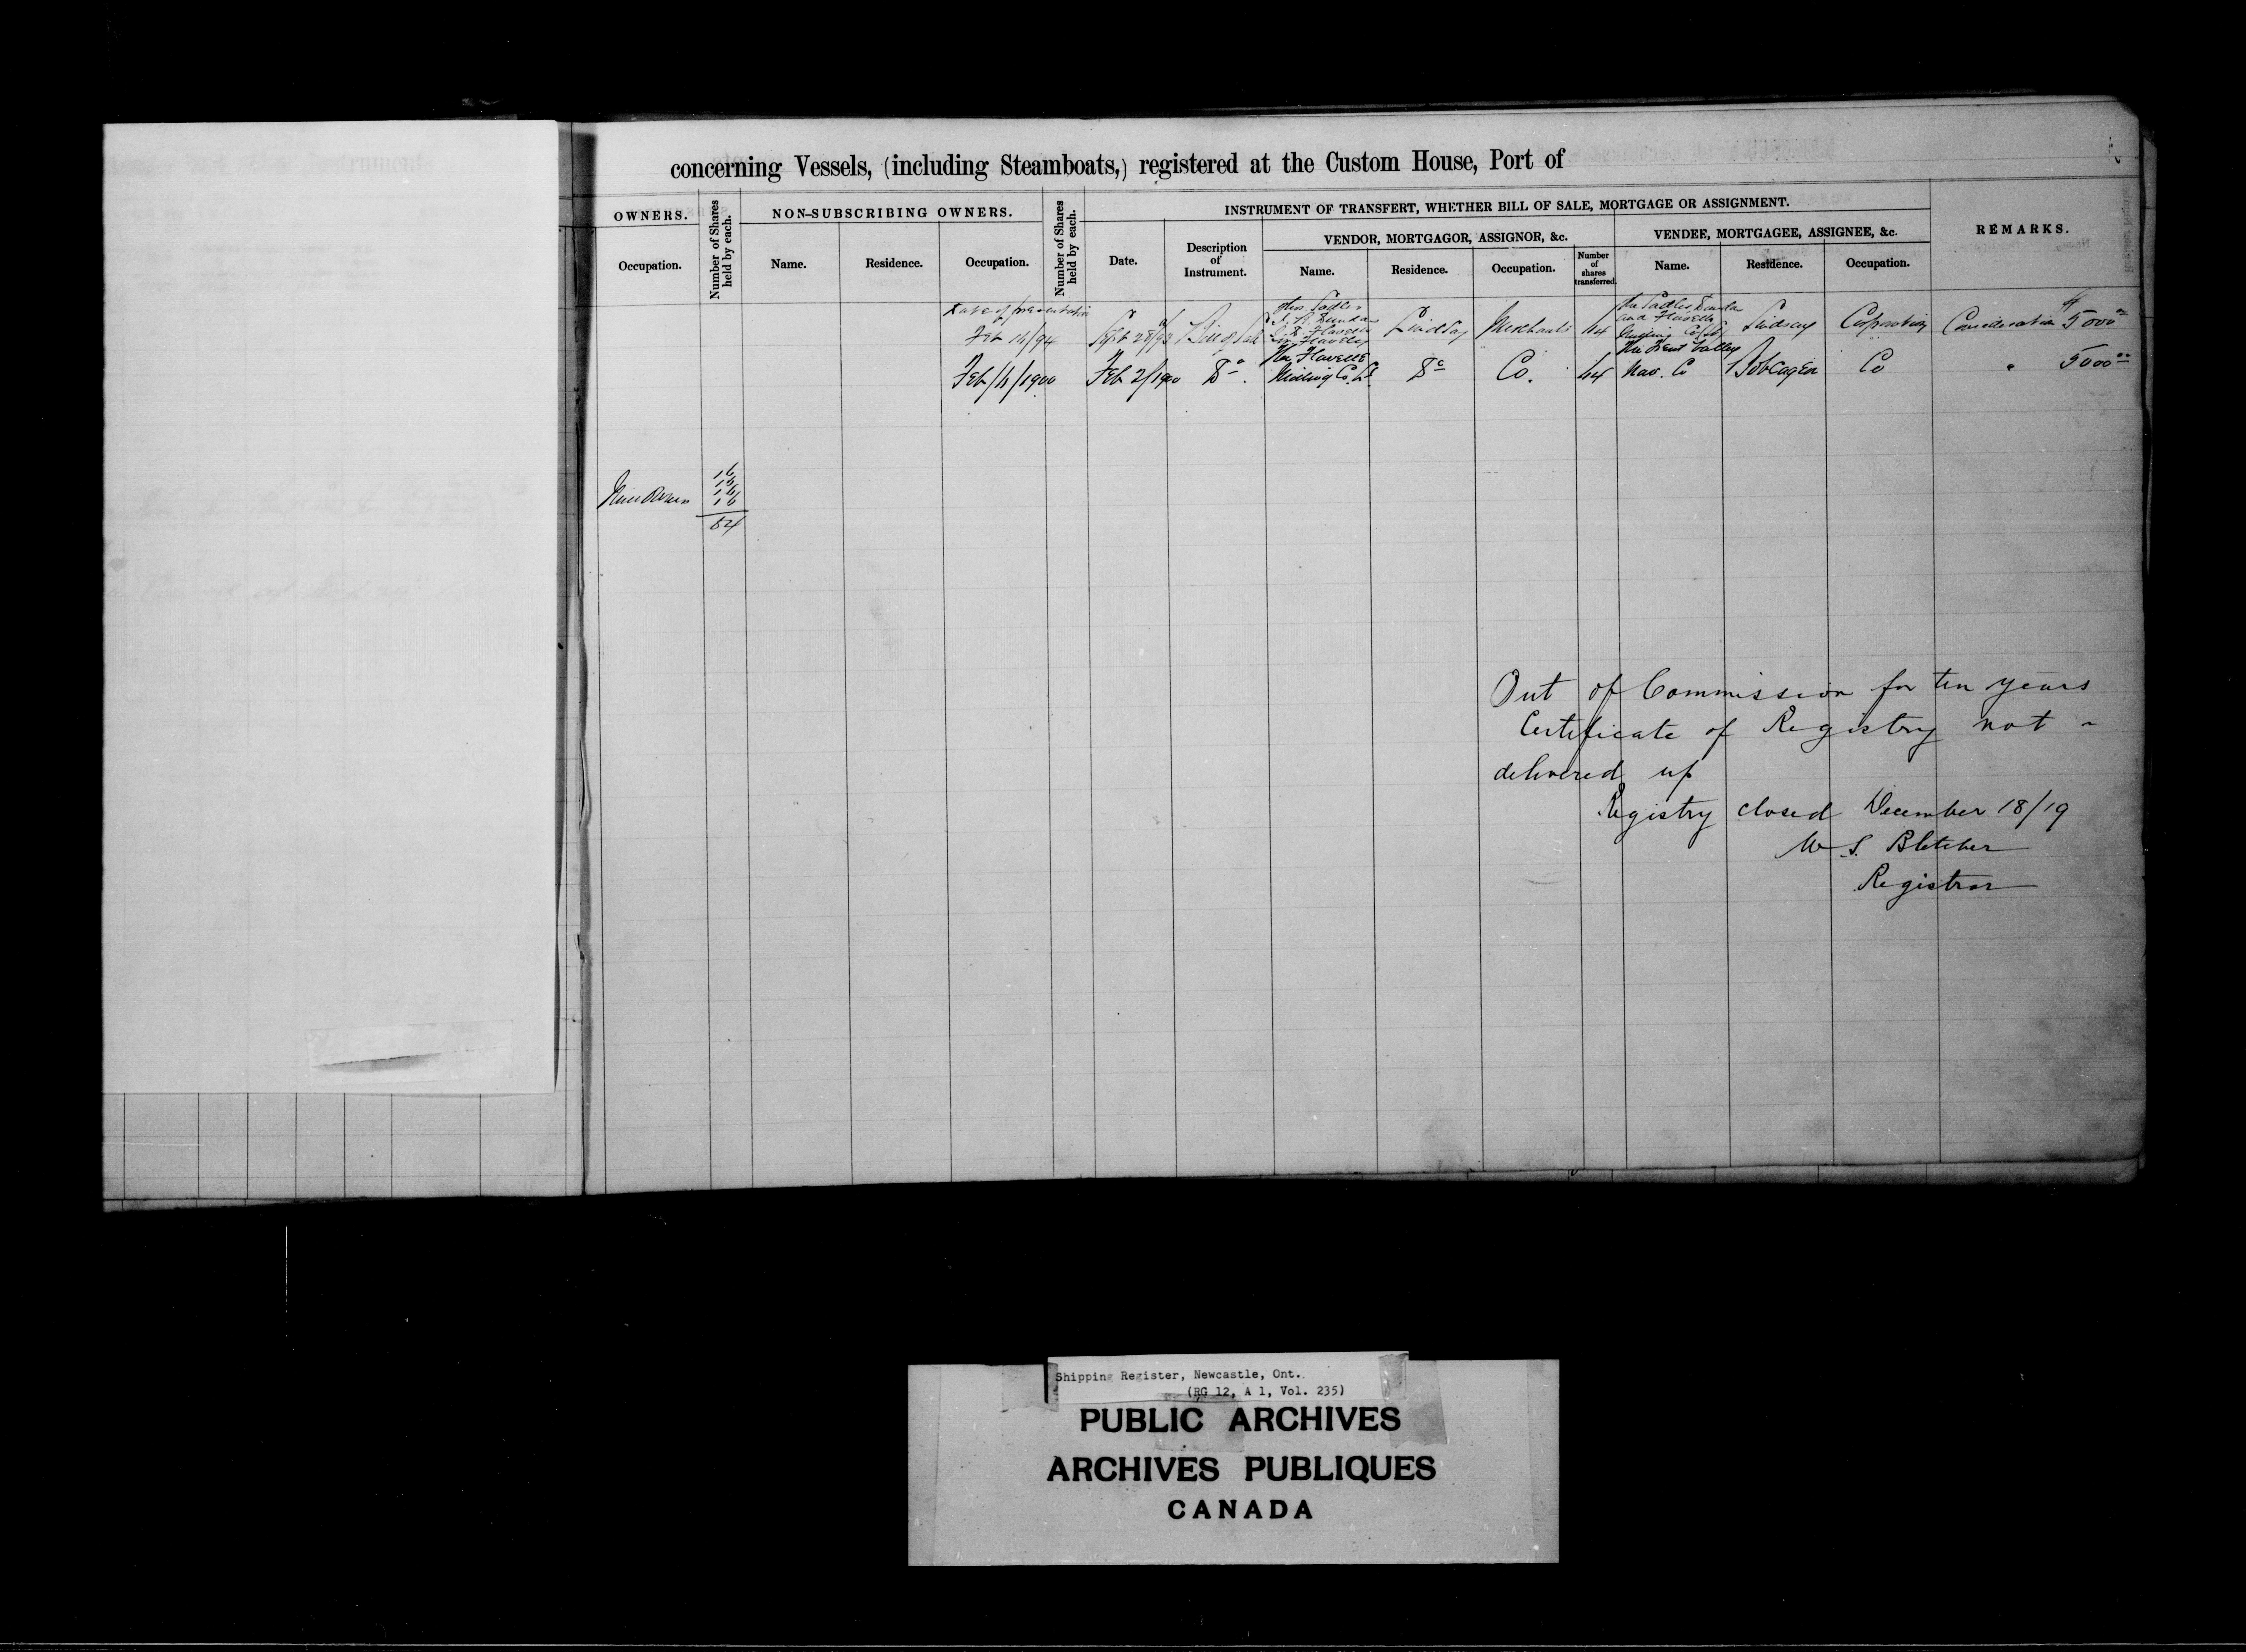 concerning Vessels, (including Steamboats,) registered at the Custom House, Port of
OWNERS.
Number of Shares held by each.
NON-SUBSCRIBING OWNERS.
Number of Shares held by each.
INSTRUMENT OF TRANSFERT, WHETHER BILL OF SALE, MORTGAGE OR ASSIGNMENT.
REMARKS.
VENDOR, MORTGAGOR, ASSIGNOR, &c.
VENDEE, MORTGAGEE, ASSIGNEE, &c.
Occupation.
Name.
Residence.
Occupation.
Date.
Description of Instrument.
Name.
Residence.
Occupation.
Number of shares transferred.
Name.
Residence.
Occupation.
Date of presentation
Feb 14/94 Sept 28/93 Bill of Sale
Thos Sadler
J. R. Dundas
J. D. Flavelle
Wm Flavelle
Lindsay Merchants 64
The Sadler, Dundas
and Flavelle
Milling Co
Lindsay Corporation Consideration $5000.00
Feb 14/1900 Feb 2/1900 Do.
The Flavelle
Milling Co. Ld
Do Co. 64
The Trent Valley
Nav. Co
Bobcaygeon Co " 5000.00
16
16
16
16
64
Out of Commission for ten years
Certificate of Registry not -
delivered up
Registry closed December 18/19
W S. Bletcher
Registrar
Shipping Register, Newcastle, Ont.
(RG 12, A 1, Vol. 235)
PUBLIC ARCHIVES
ARCHIVES PUBLIQUES
CANADA